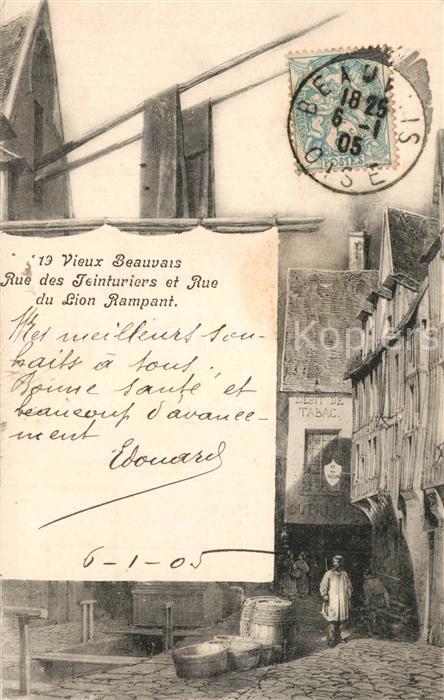 BEAUVAIS
18 25
6 - 1
05
OISE
POSTES
19 Vieux Beauvais
Rue des Teinturiers et Rue
du Lion Rampant.
Mes meilleurs sou-
haits à tous.
Bonne santé et
beaucoup d'avance-
ment
Edouard
6-1-05
DÉBIT DE
TABAC.
Kopiers